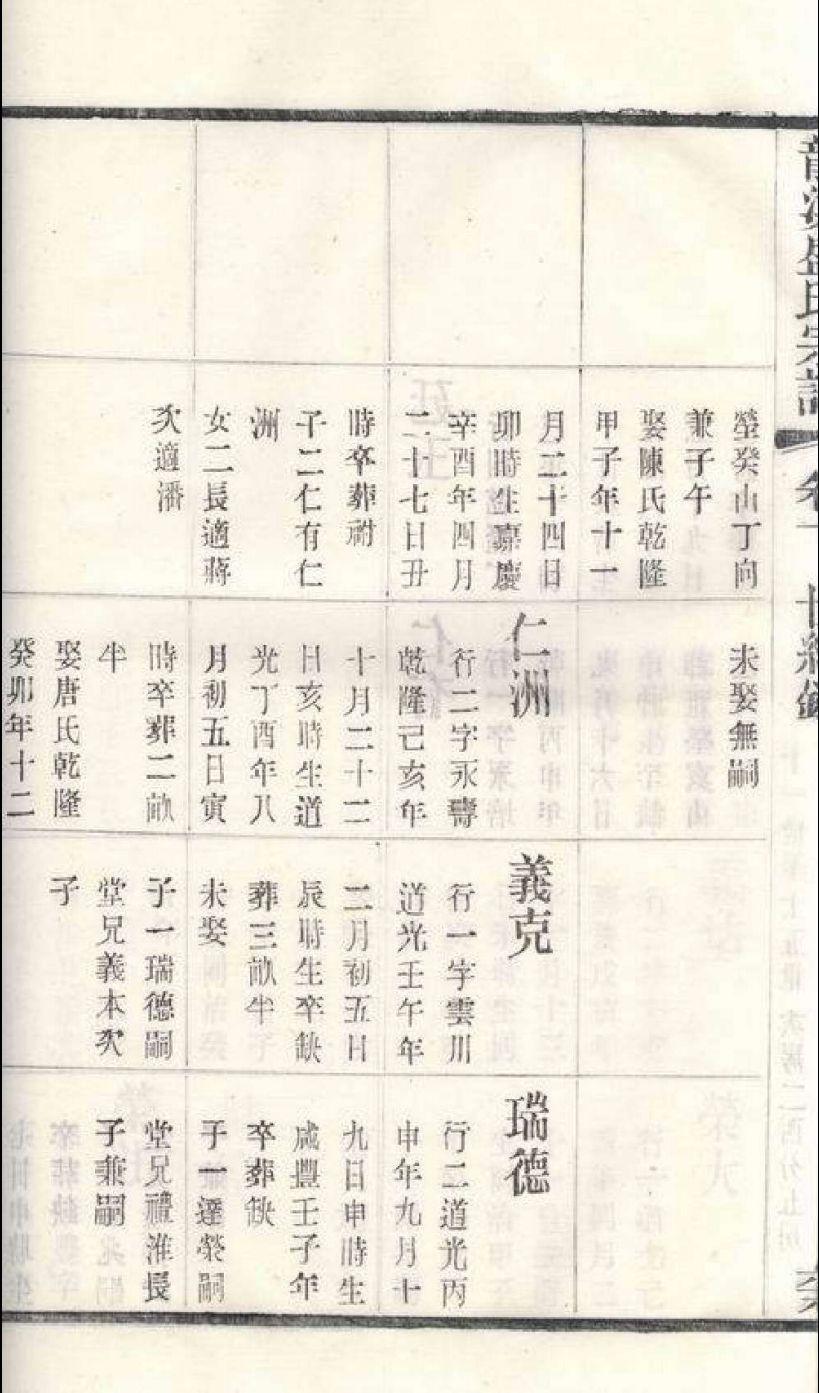 龍溪盛氏宗譜
卷
世系錄
塋癸山丁向
兼子午
娶陳氏乾隆
甲子年十一
月二十四日
卯時生嘉慶
辛酉年四月
二十七日丑
時卒葬祔
子二仁有仁
洲
女二長適蔣
次適潘
未娶無嗣
仁洲
行二字永壽
乾隆己亥年
十月二十二
日亥時生道
光丁酉年八
月初五日寅
時卒葬二畝
半
娶唐氏乾隆
癸卯年十二
義克
行一字雲川
道光壬午年
二月初五日
辰時生卒缺
葬三畝半
未娶
子一瑞德嗣
堂兄義本次
子
瑞德
行二道光丙
申年九月十
九日申時生
咸豐壬子年
卒葬缺
子一達榮嗣
堂兄禮淮長
子兼嗣